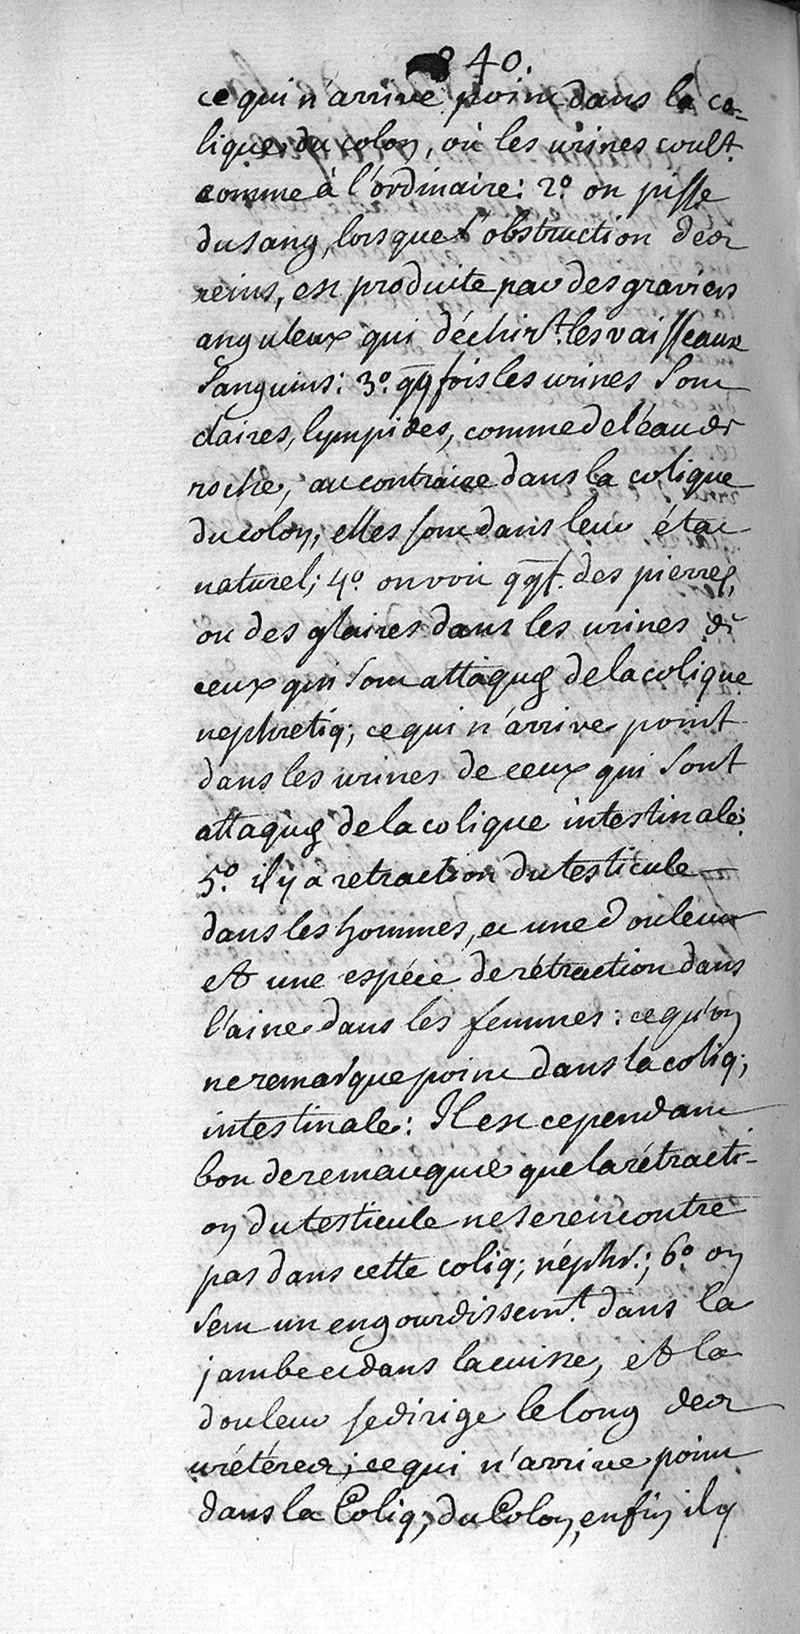 240.
ce qui n'arrive point dans la co-
lique du colon, où les urines coult.
comme à l'ordinaire: 2.° on pisse
du sang, lorsque l'obstruction des
reins, est produite par des graviers
anguleux qui déchirt. les vaisseaux
sanguins: 3.° qqfois les urines sont
claires, lympides, comme de l'éau de
roche, au contraire dans la colique
du colon, elles sont dans leur état
naturel; 4.° on voit qqf. des pierres,
ou des glaires dans les urines de
ceux qui sont attaqués de la colique
nephretiq; ce qui n'arrive point
dans les urines de ceux qui sont
attaqués de la colique intestinale:
5.° il y a retraction du testicule
dans les hommes, et une douleur
et une espéce de rétraction dans
l'aine dans les femmes: ce qu'on
ne remarque point dans la coliq;
intestinale: Il est cependant
bon de remarquer que la rétracti-
on du testicule ne se rencontre
pas dans cette coliq; néphr.; 6.° on
sent un engourdissemt. dans la
jambe et dans la cuisse, et la
douleur se dirige le long des
urétéres; ce qui n'arrive point
dans la Coliq; du Colon, enfin il y